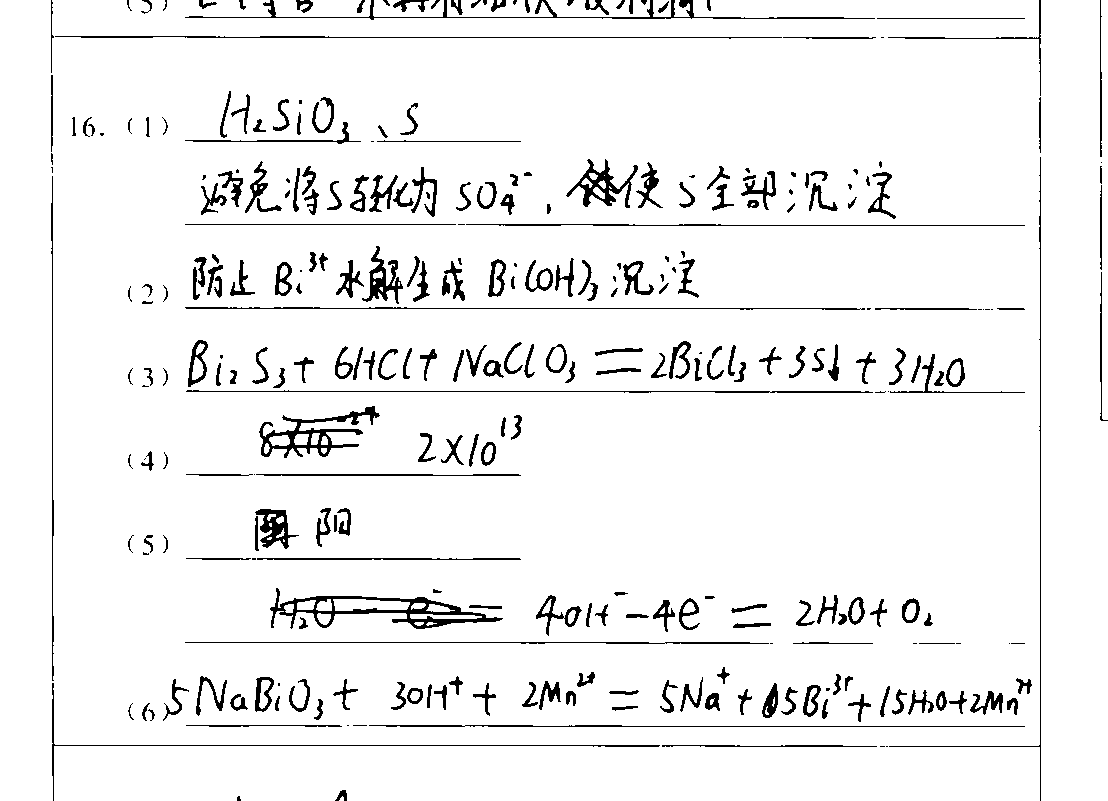 16.（1） H₂SiO₃、S
避免将S转化为SO₄²⁻，使S全部沉淀
（2） 防止Bi³⁺水解生成Bi(OH)₃沉淀
（3） Bi₂S₃+6HCl+NaClO₃=2BiCl₃+3S↓+3H₂O
（4） 2×10¹³
（5） 阳
4OH⁻-4e⁻=2H₂O+O₂
（6） 5NaBiO₃+30H⁺+2Mn²⁺=5Na⁺+5Bi³⁺+15H₂O+2Mn⁷⁺